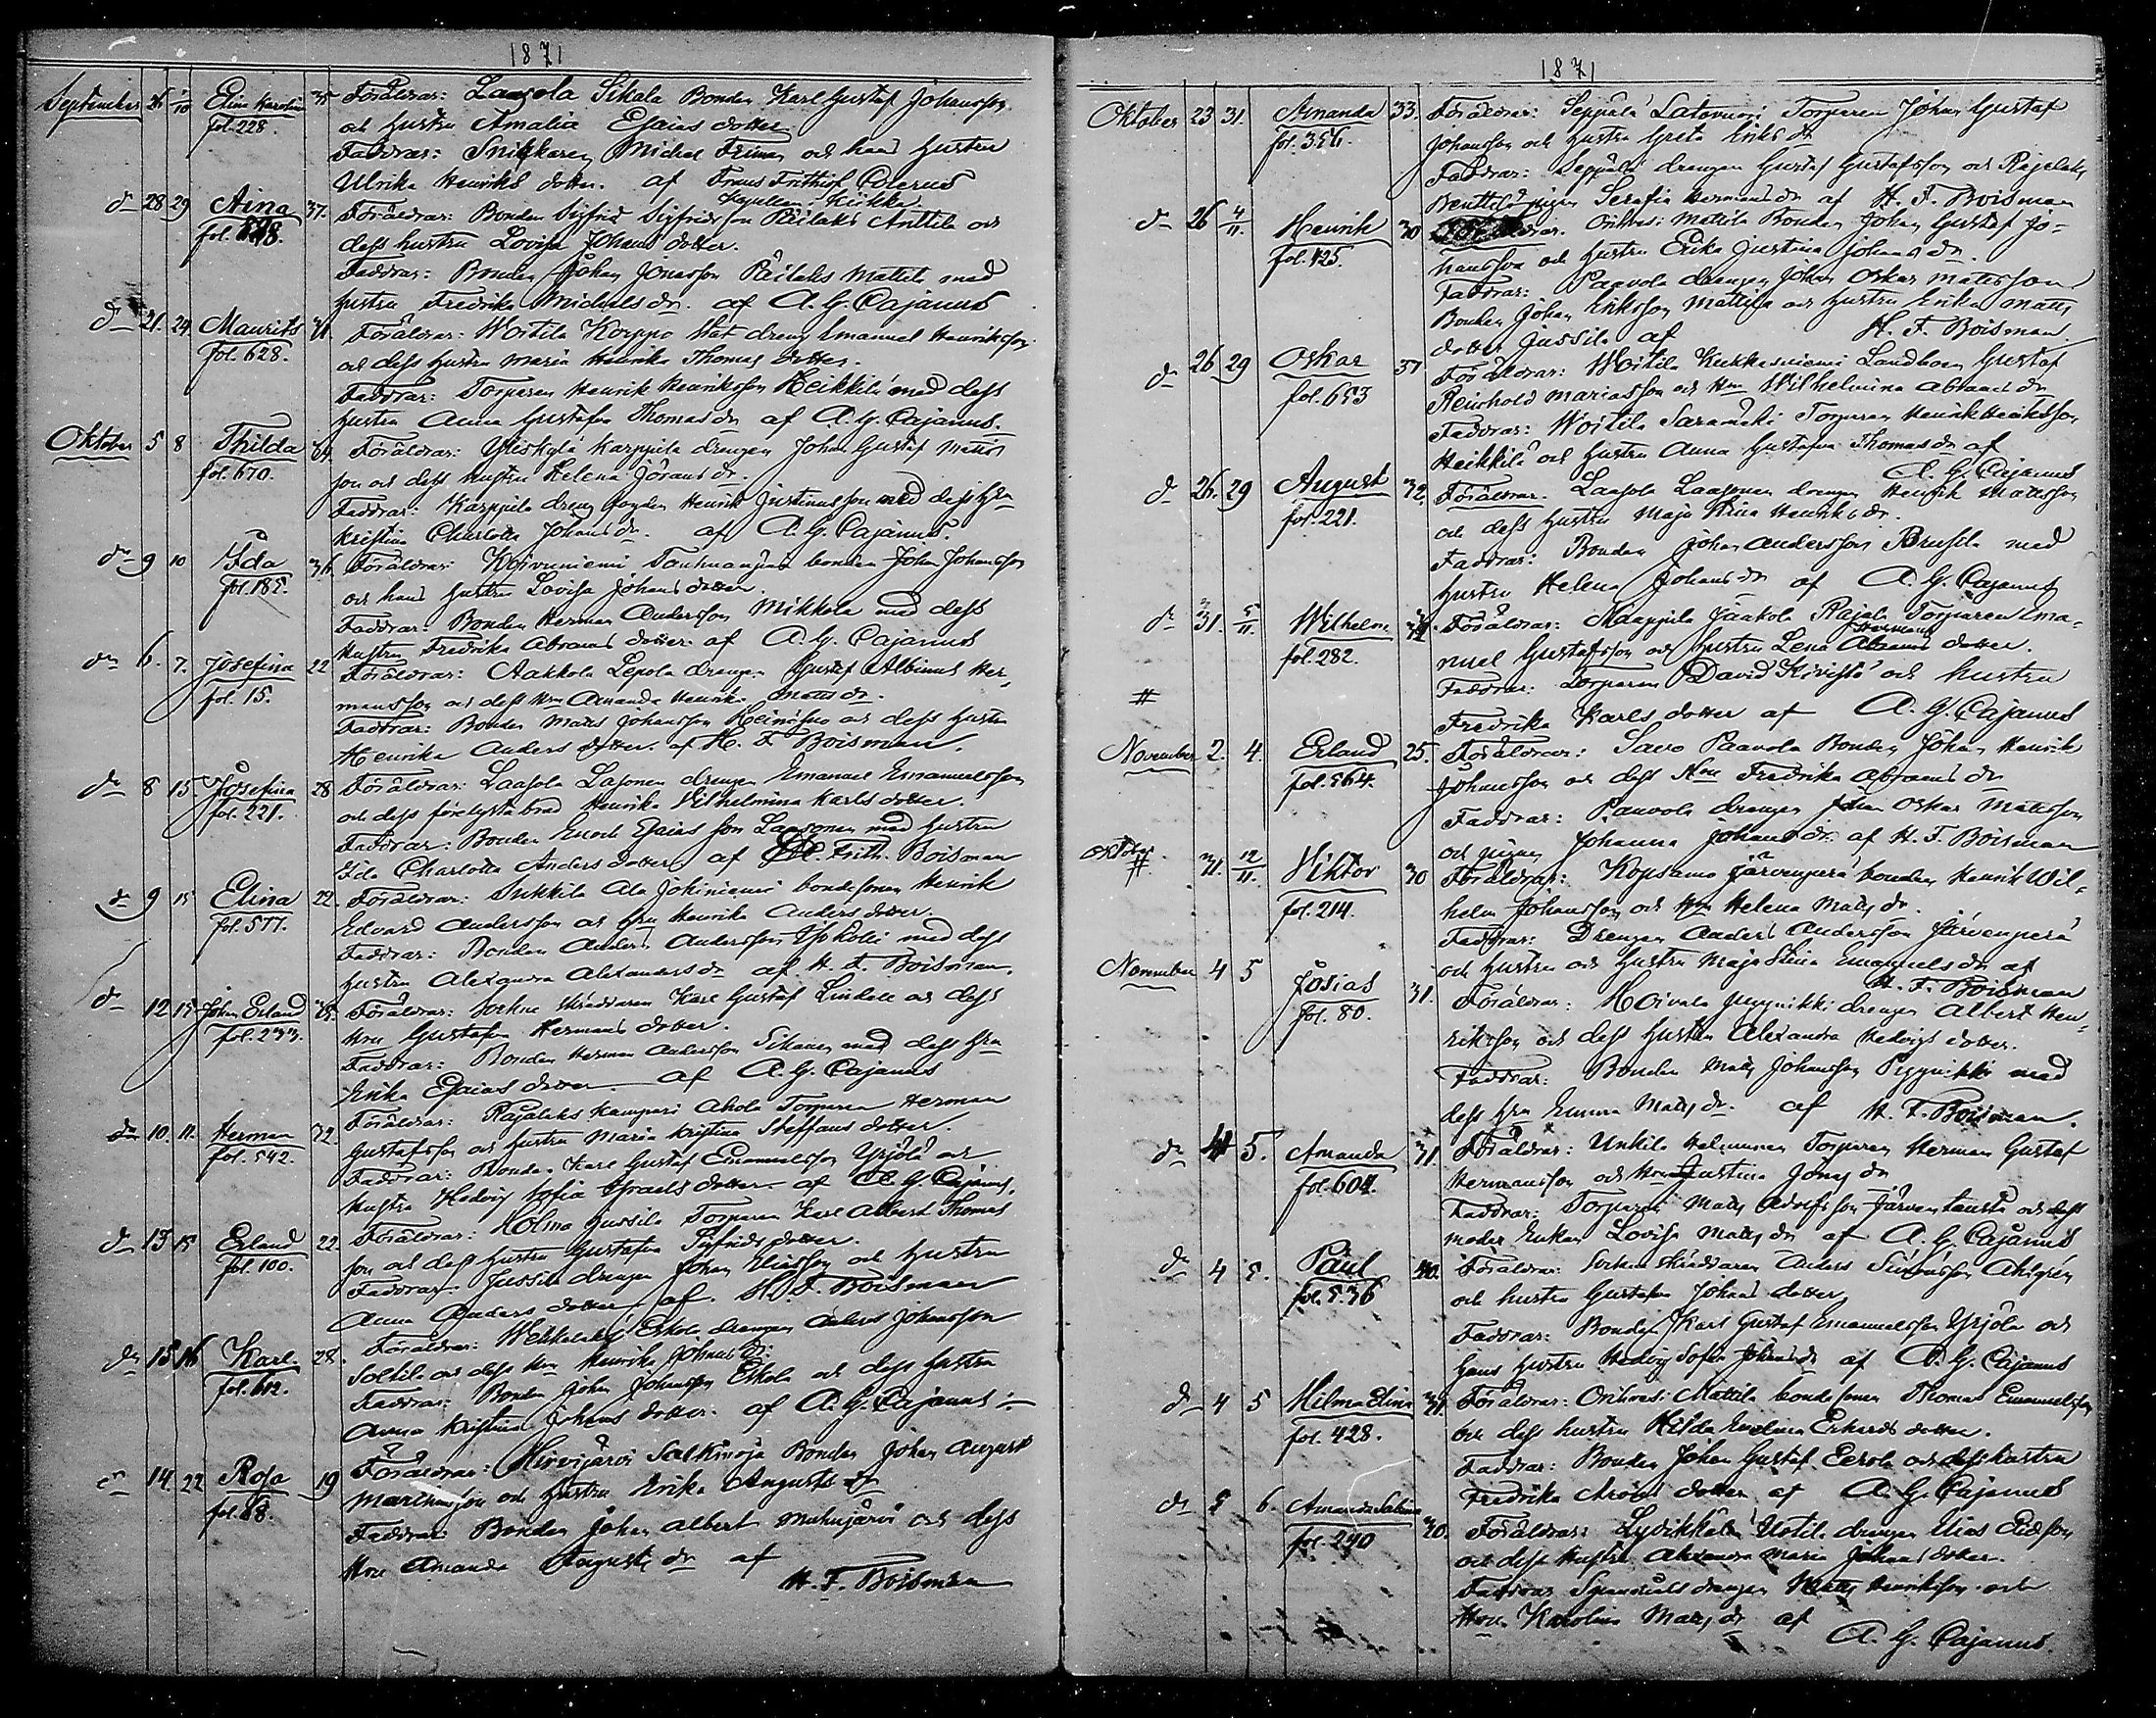 1871
September 26 1/10 Elina Karolina 35 Föräldrar: Laasola Sikala Bonden Karl Gustaf Johansson
fol. 228. och hustru Amalia Esaias dotter
Faddrar: Snickaren Michel Friman och hans hustru
Ulrika Henriks dotter. af Frans Frithiof
dn 28 29 Aina 37. Föräldrar: Bonden Sigfrid Sigfridsson Päilaks Anttila och
dess hustru Lovisa Johans dotter.
Faddrar: Bonden Johan Jonasson Päilaks Mattila med
hustru Fredrika Michels dr. af A. G. Cajanus
dn 21. 24. Maurits Föräldrar: Woitila Korppo Stat dreng Emanuel Henriksson
fol. 628. och dess hustru Maria Henrika Thomas dotter.
Faddrar: Torparen Henrik Henriksson Heikkilä med dess
hustru Anna Gustafva Thomas dr af A. G. Cajanus.
Oktober 5 8 Thilda Föräldrar: Yliskylä Karppila drengen Johan Gustaf Matts
fol. 670. son och dess hustru Helena Jörans dr.
Faddrar: Karppila dreng fogden Henrik Justinusson med dess hru
Kristina Charlotta Johans dr. af A. G. Cajanus.
dn 9 10 Ida 36 Föräldrar: Koivuniemi bonden Johan Johansson
fol. 185. och hans hustru Lovisa Johans dotter.
Faddrar: Bonden Herman Andersson Mikkola med dess
hustru Fredrika Abrams dotter. af A. G. Cajanus
dn 6. 7. Josefina 22 Föräldrar: Aakkola Lepola drengen Gustaf Albinus Her,
fol. 15. mansson och dess Hru Amanda Henrika Matts dr.
Faddrar: Bonden Matts Johansson och dess hustru
Henrika Anders dotter. af H. F. Boisman.
dn 8 15 Josefina 28 Föräldrar: Laasola Lasonen drengen Emanuel Emanuelsson
fol. 221. och dess förelysta brud Henrika Vilhelmina Karls dotter.
Faddrar: Bonden Enoch Esaias son Laasonen med hustru
Ida Charlotta Anders dotter af Frith. Boisman
dn 9 15 Elina 22. Föräldrar: Sukkila Ala Jokiniemi bondesonen Henrik
fol. 577. Edvard Andersson och hru Henrika Anders dotter.
Faddrar: Bonden Anders Andersson med dess
hustru Alexandra Alexanders dr af H. F. Boisman.
dn 12 15 Johan Erland Föräldrar: Sockne skräddaren Karl Gustaf Lindell och dess
fol. 233. Hru Gustafva Hermans dotter.
Faddrar: Bonden Herman Andersson Sikanen med dess hru
Erika Esaias dotter af A. G. Cajanus
dn 10. 11. Herman 32. Föräldrar: Rajalaks Kampari Ahola Torparen Herman
fol. 542. Gustafsson och hustru Maria Kristina Steffans dotter.
Faddrar: Bonden Karl Gustaf Emanuelsson Yrjölä och
hustru Hedvig Sofia Israels dotter af A. G. Cajanus.
dn 13 15 Erland 22. Föräldrar: Holma Jussila Torparen Karl Albert Thomas
fol. 100. son och dess hustru Gustafva Sigfrids dotter.
Faddrar: Jussila drengen Johan Eliasson och hustru
Anna Anders dotter af H. F. Boisman
dn 15 16 Karl 28. Föräldrar: Eskola drengen Anders Johansson
fol. 612. Soltila och dess Hru Henrika Johans dr:
Faddrar: Bonden Johan Johansson Eskola och dess hustru
Anna Kristina Johans dotter. af A. G. Cajanus
dn 14. 22 Rosa 19 Föräldrar: Hirvijärvi Salkinoja Bonden Johan August
fol. 88. och hustru Erika Augusts dr
Faddrar Bonden Johan Albert Muhujärvi och dess
Hru Amanda Augusts dr af
H. F. Boisman
1871
Oktober 23 31. Amanda 33. Föräldrar: Seppälä Latovuori Torparen Johan Gustaf
fol. 356. Johansson och hustru Greta Eriks dr
Faddrar: Seppälä drengen Gustaf Gustafsson och Rajalaks
Penttilä pigan Serafia Hermans dr af H. F. Boisman
dn 26 4/11. Henrik 30 Orihvesi Mattila Bonden Johan Gustaf Jo-
fol. 425. hansson och hustru Erika Justina Johans dr.
Faddrar: Paavola drengen Johan Oskar Mattsson
Bonden Johan Eriksson Mattila och hustru Erika Matts
dotter Jussila af H. F. Boisman
dn 26 29 Oskar 37 Föräldrar: Woitila Kukkasniemi Landboen Gustaf
fol. 653 Reinhold Mariasson och Hru Wilhelmina Abrams dr
Faddrar: Woitila Saramäki Torparen Henrik Henriksson
Heikkilä och hustru Anna Gustafva Thomas dr af
A. G. Cajanus
dn 26. 29 August 32. Föräldrar. Laasola Laasonen drengen Henrik Mattsson
fol. 221. och dess hustru Maja Stina Henriks dr.
Faddrar: Bonden Johan Andersson Prusila med
hustru Helena Johans dr af A. G. Cajanus
dn 31. 5/11. Wilhelm Föräldrar: Maappila Jaakola Rajala Torparen Ema-
fol. 282. nuel Gustafsson och hustru Lena Hermans dotter.
Faddrar: Torparen David Kivistö och hustru
# Fredrika Karls dotter af A. G. Cajanus
November 2. 4. Erland 25. Föräldrar: Savo Paavola Bonden Johan Henrik
fol. 564. Johansson och dess Hru Fredrika Abrams dr
Faddrar: Paavola drengen Johan Oskar Mattsson
och pigan Johanna Johans dr. af H. F. Boisman
oktober # 31. 12/11. Viktor 30 Föräldrar: Kopsamo Järvenperä bonden Henrik Wil-
fol. 214. helm Johansson och Hru Helena Matts dr.
Faddrar: Drengen Anders Andersson Järvenperä
och hustru och hustru Maja Stina Emanuels dr af
H. F. Boisman
November 4 5 Josias 31. Föräldrar: Hoivala Pyynikki drengen Albert Hen-
fol. 80. riksson och dess hustru Alexandra Hedvigs dotter.
Faddrar: Bonden Matts Johansson Pyynikki med
dess hru Emma Matts dr. af H. F. Boisman.
dn 4 5. Amanda 31. Föräldrar: Unkila Torparen Herman Gustaf
fol. 604. Hermansson och Hru Justina Jonas dr
Faddrar: Torparen Matts Adolfsson Järventausta och dess
moder Enkan Lovisa Matts dr af A. G. Cajanus
dn 4 5. Paul 40. Föräldrar: Socken skräddaren Anders Simonsson Ahlgren
fol. 536 och hustru Gustafva Johans dotter
Faddrar: Bonden Karl Gustaf Emanuelsson Yrjölä och
hans hustru Hedvig Sofia dr af A. G. Cajanus
dn 4 5 Hilma Elina Föräldrar: Orihvesi Mattila bondesonen Thomas Emanuelsson
fol. 428. och dess hustru Hilda Evelina Erhards dotter.
Faddrar: Bonden Johan Gustaf Eerola och dess hustru
Fredrika dotter af A. G. Cajanus
dn 5 6. Amanda Sabina 30. Föräldrar: Lydikkälä Uotila drengen Elias
fol. 290 och dess hustru Alexandra Maria Johans dotter.
Faddrar drengen Matts Henriksson och
Hru Karolina Matts dr af
A. G. Cajanus